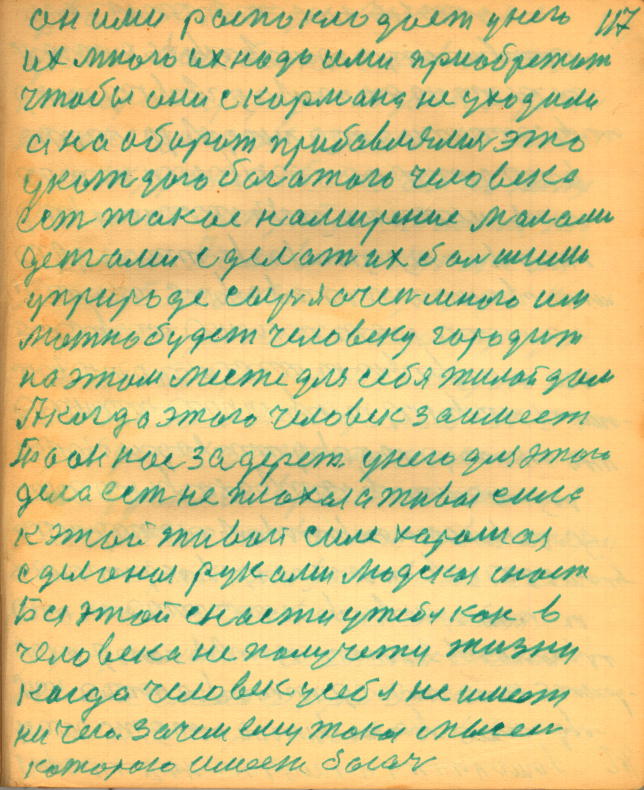 он ими роспоклодает унего 117
их много ихнадо ими приобретат
чтобы они скормана не уходили
а на оборот прибавлялис это
укаждого богатого человека
ест такое намирение малами
детами сделат их болшими
уприроде сыря очен много им
можно будет человеку городит
на этом месте для себя жилой дом
А когда этого человек заимеет
то он нос задерет унего для этого
дела ест не плохая живая сила
к этой живой силе харошая
сделоная руками людская снаст
Без этой снасти утебя как в
человека не получети жизни
когда человек усебя не имеет
ни чего. зачем ему така мысел
которою имеет богач